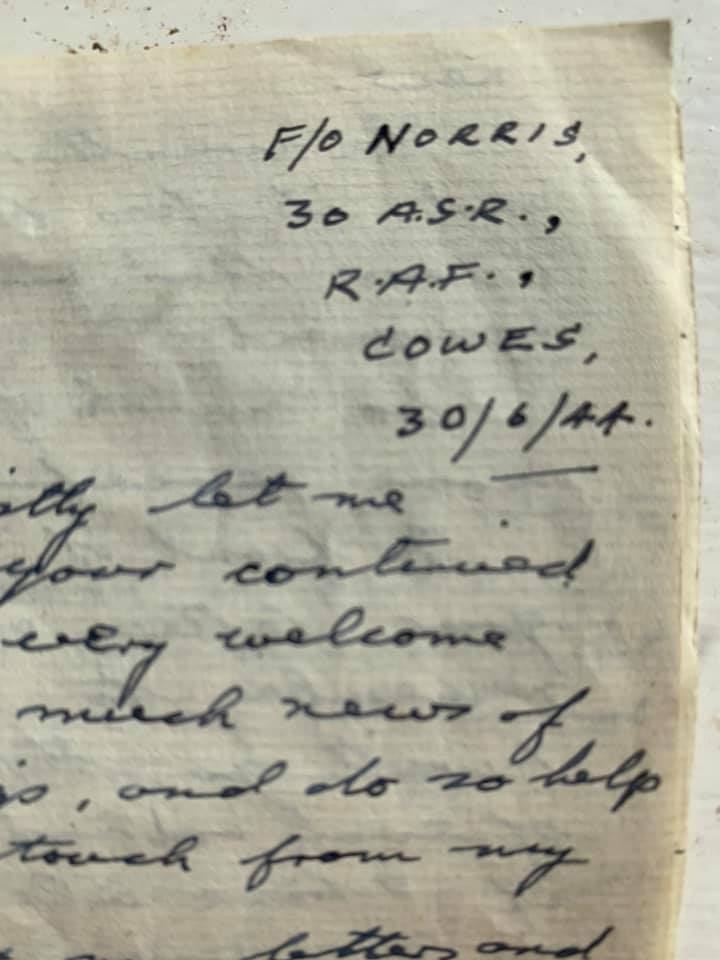 F/O NORRIS,
30 A.S.R.,
R.A.F.,
COWES,
30/6/44.
let me
your continued
very welcome
much news of
, and do so help
touch from my
letters and